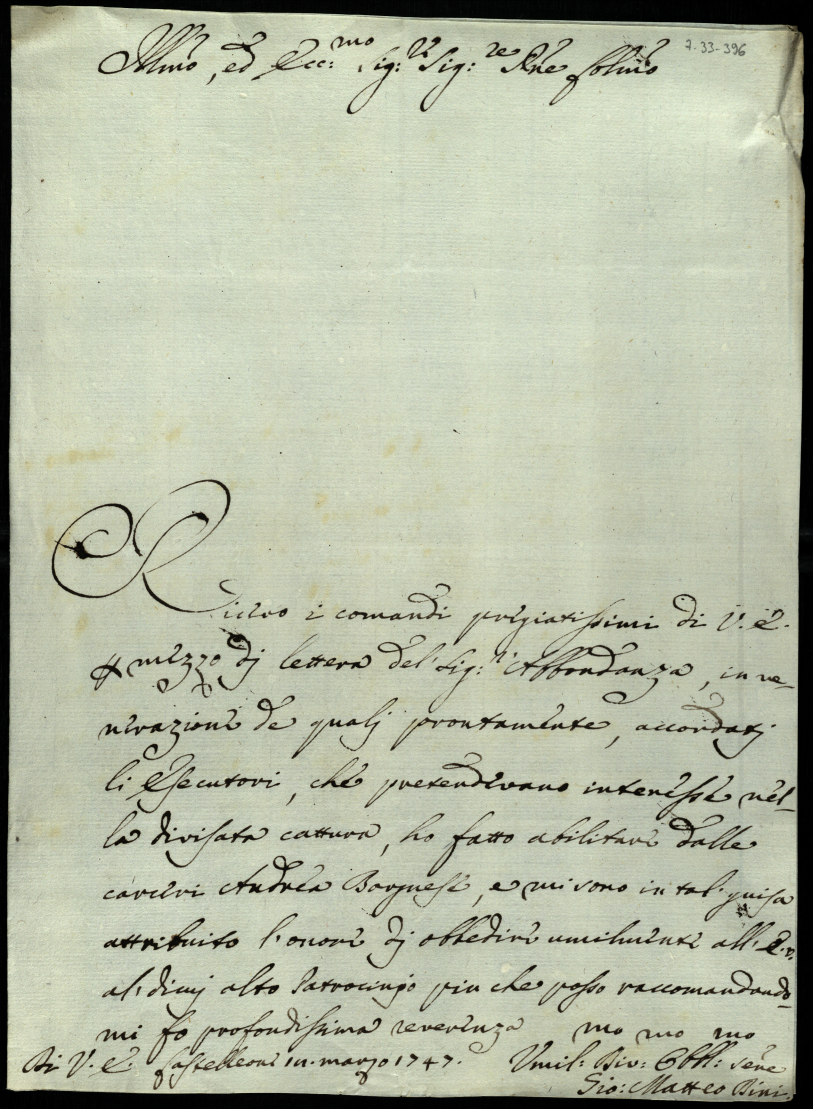 7-33-396
Illmo, ed Ecc:mo Sig:r Sig:re Pne Colmo
Ricevo i comandi pregiatissimi di V. E.
p mezzo dj lettera del Sig:r Abbondanza, in ve-
nerazione de qualj prontamente, accordatj
li Esecutori, che pretendevano interesse nel-
la divisata cattura, ho fatto abilitare dalle
carceri Andrea Borgnese, e mi sono in tal guisa
attribuito l'onore dj obbedire umilmente all' E. V.
al dicuj alto Patrocinjo piu che posso raccomandando-
mi fo profondissima reverenza
Di V. E. Castelleone 14. marzo 1747.
Umil:mo Div:mo Obbl:mo Sere
Gio: Matteo Bini